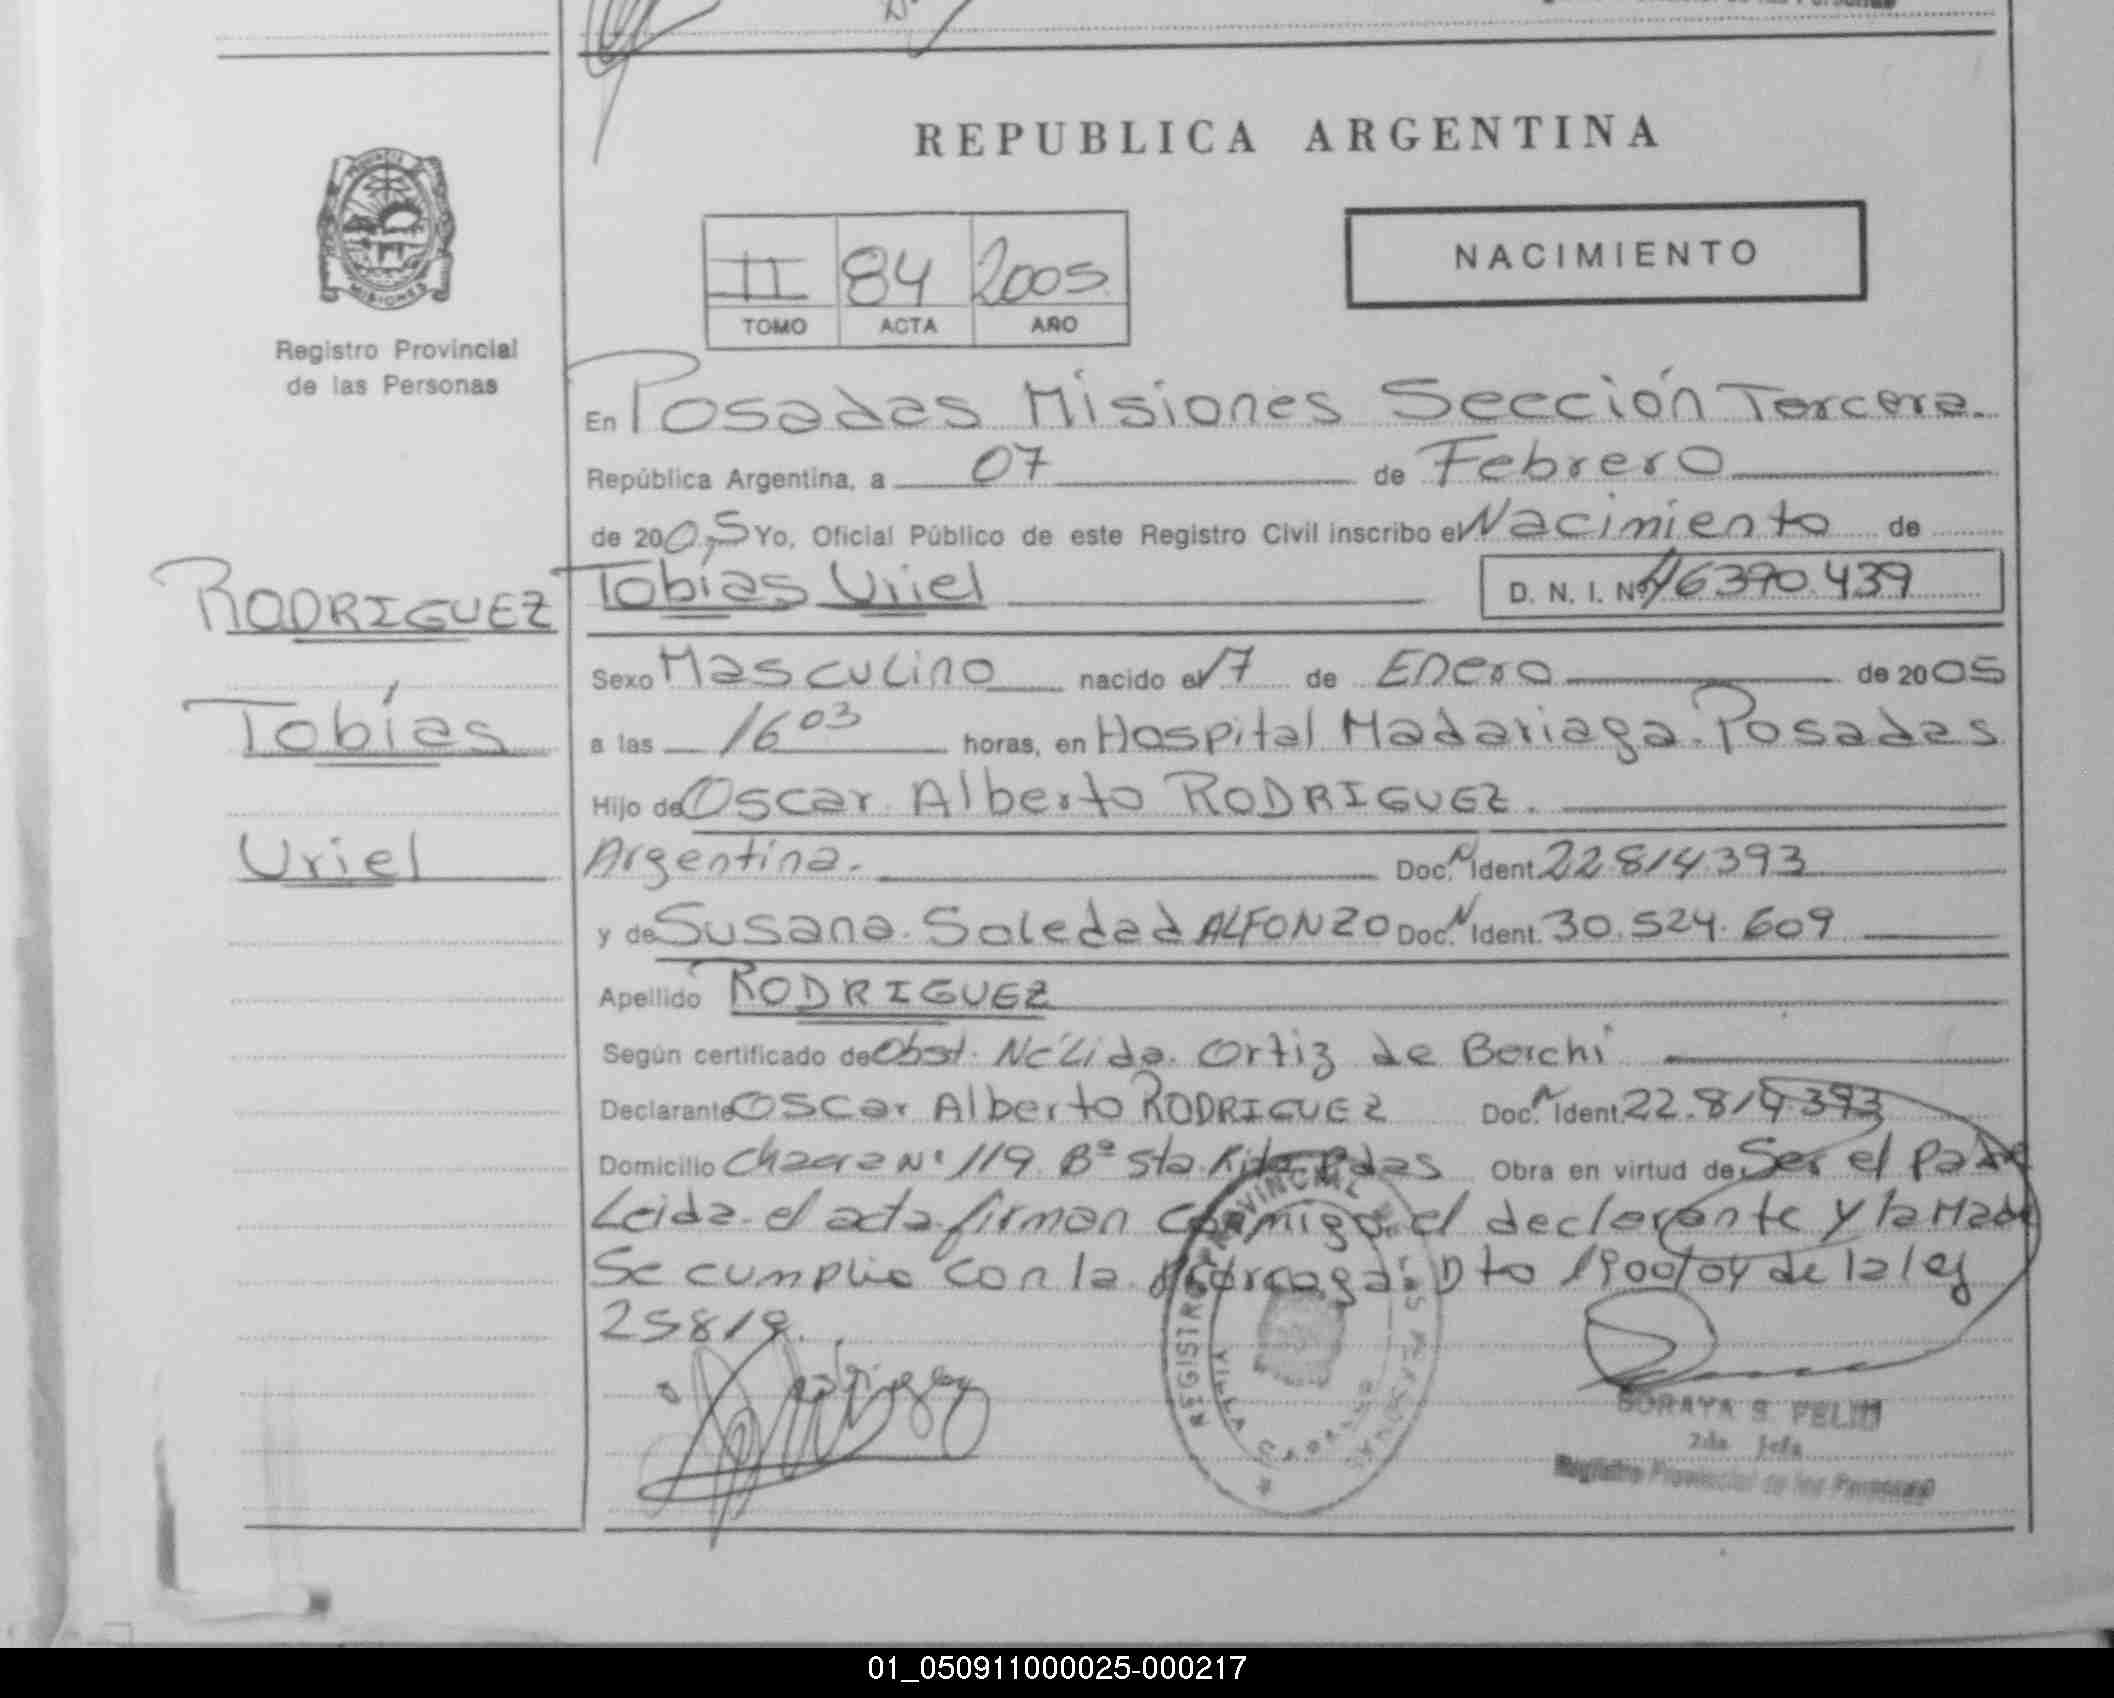 REPUBLICA ARGENTINA
PROVINCIA DE MISIONES
Registro Provincial
de las Personas
II 84 2005
TOMO ACTA AÑO
NACIMIENTO
En Posadas Misiones Sección Tercera.
República Argentina, a 07 de Febrero
de 2005 Yo, Oficial Público de este Registro Civil inscribo el Nacimiento de
RODRIGUEZ
Tobías
Uriel
Tobías Uriel D. N. I. Nº 46390.439
Sexo Masculino nacido el 17 de Enero de 2005
a las 16 03 horas, en Hospital Madariaga. Posadas
Hijo de Oscar Alberto RODRIGUEZ.
Argentina. Doc. N Ident. 22.814.393
y de Susana Soledad ALFONZO Doc. N Ident. 30.524.609
Apellido RODRIGUEZ
Según certificado de Obst. Nélida Ortiz de Berchi
Declarante Oscar Alberto RODRIGUEZ Doc. N Ident. 22.814.393
Domicilio Chacra Nº 119 Bº Sta. Rita Pdas Obra en virtud de Ser el Padre
Leida el acta firman conmigo el declarante y la Madre
Se cumplio con la Dto 1900/04 de la ley
25819.
REGISTRO PROVINCIAL DE LAS PERSONAS
VILLA URQUIZA
SORAYA S. FELIU
2da. Jefa
Registro Provincial de las Personas
01_050911000025-000217